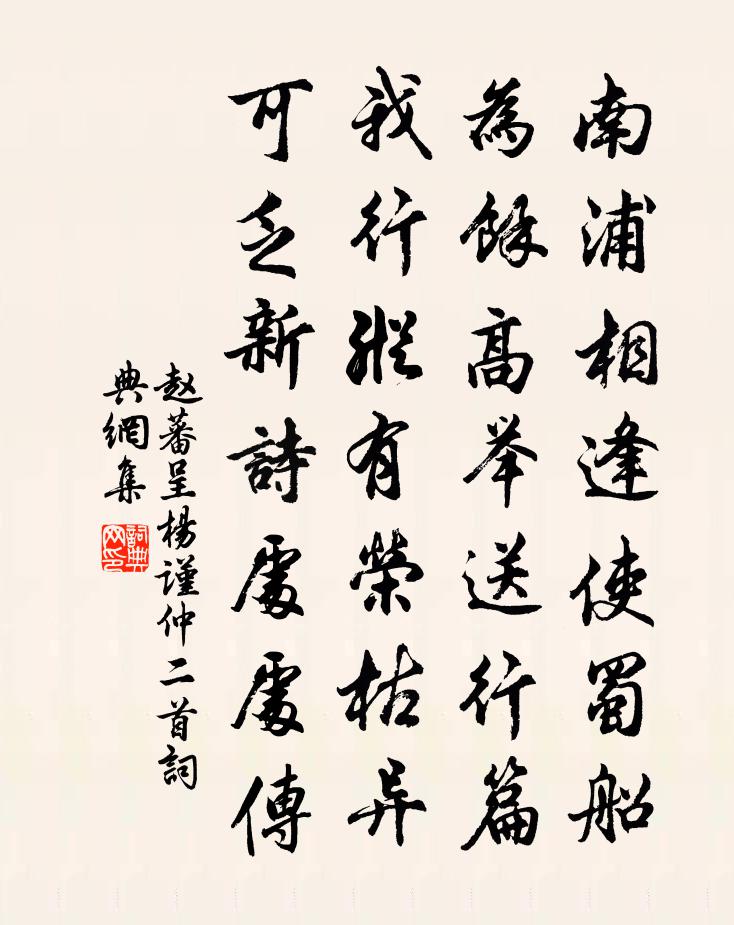 南浦相逢使蜀船
為餘高举送行篇
我行縱有榮枯异
可乏新詩處處傳
赵蕃呈楊謹仲二首詞
典網集
詞典网印